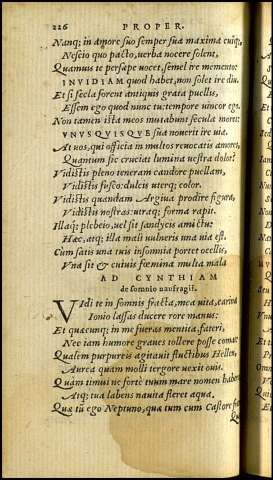 226 PROPER.
Nanq; in amore suo semper sua maxima cuiq;
Nescio quo pacto, uerba nocere solent,
Quamuis te persæpe uocet, semel ire memento:
INVIDIAM quod habet, non solet ire diu.
Et si secla forent antiquis grata puellis,
Essem ego quod nunc tu: tempore uincor ego.
Non tamen ista meos mutabunt secula mores:
VNVSQVISQVE sua nouerit ire uia.
At uos, qui officia in multos reuocatis amores,
Quantum sic cruciat lumina uestra dolor?
Vidistis pleno teneram candore puellam,
Vidistis fusco: dulcis uterq; color.
Vidistis quandam Argiua prodire figura,
Vidistis nostras: utraq; forma rapit.
Illaq; plebeio, uel sit sandycis amictu:
Hæc, atq; illa mali uulneris una uia est.
Cum satis una tuis insomnia portet ocellis,
Vna sit & cuiuis fœmina multa mala
AD CYNTHIAM
de somnio naufragii.
Vidi te in somnis fracta, mea uita, carina
Ionio lassas ducere rore manus:
Et quæcunq; in me fueras mentita, fateri,
Nec iam humore graues tollere posse comas
Qualem purpureis agitauit fluctibus Hellen,
Aurea quam molli tergore uexit ouis.
Quam timui ne forte tuum mare nomen haberet
Atq; tua labens nauita fleret aqua.
Quæ tū ego Neptuno, quæ tum cum Castore